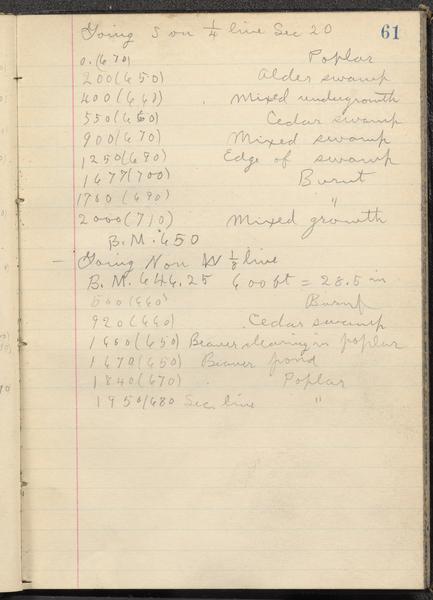 61
Going S on 1/4 line Sec 20
0.(670) Poplar
200(650) Alder swamp
400(640) Mixed undergrowth
550(660) Cedar swamp
900(670) Mixed swamp
1250(690) Edge of swamp
1677(700) Burnt
1780(690) "
2000(710) Mixed growth
B.M. 650
— Going N on W 1/8 line
B.M. 646.25 600 ft = 28.5 in
(640) Burnt
920(640) Cedar swamp
1460(650) Beaver clearing in poplar
1670(650) Beaver pond
1840(670) Poplar
1950(680 Sec. line "